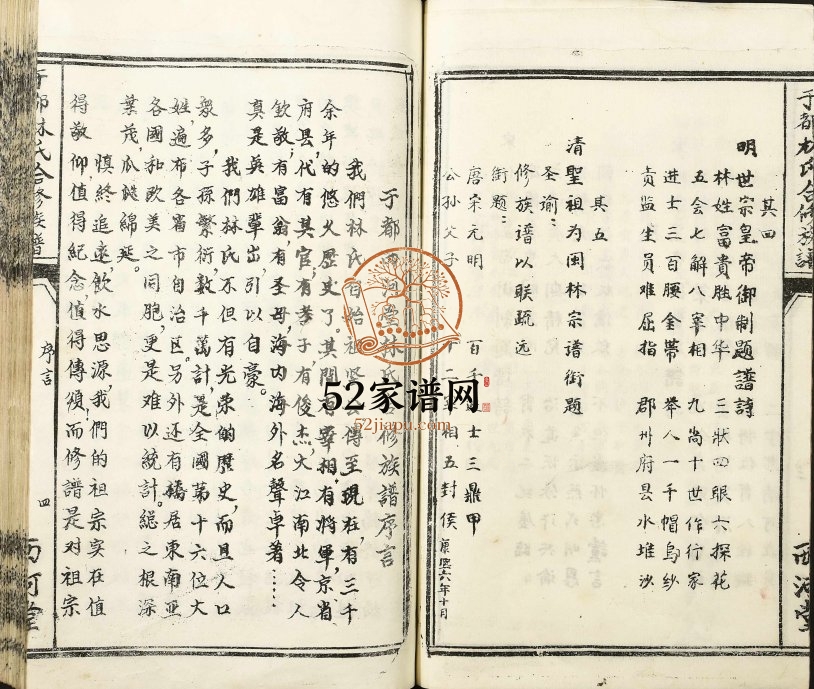 于都林氏合修族譜
西河堂
其四
明世宗皇帝御制題譜詩
林姓富貴胜中华 三狀四眼六探花
五会七解八宰相 九尚十世作行家
进士三百腰金帶 举人一千帽烏紗
贡监生员难屈指 郡州府县水堆沙
其五
清聖祖为闽林宗譜銜題
圣諭:
修族譜以联疏远
銜題:
唐宋元明 百千 士三鼎甲
公孙父子 十二 相五封侯 康熙六年十月
于都西河堂林氏合修族譜序言
我們林氏自始祖坚 傳至現在有三千
余年的悠久歷史了。其間有宰相,有將軍,京省
府县,代有其官,有孝子有俊杰,大江南北令人
欽敬,有富翁,有圣母,海内海外名聲卓著……
真是英雄輩出,引以自豪。
我們林氏不但有光荣的歷史,而且人口
衆多,子孫繁衍,数千萬計是全國第十六位大
姓,遍布各省市自治区。另外还有僑居東南亚
各國和欧美之同胞,更是难以統計。總之根深
葉茂,瓜瓞綿延。
慎終追遠,飲水思源,我們的祖宗实在值
得敬仰值得紀念,值得傳頌,而修譜是对祖宗
于都林氏合修族譜
序言
四
西河堂
52家谱网
52jiapu.com